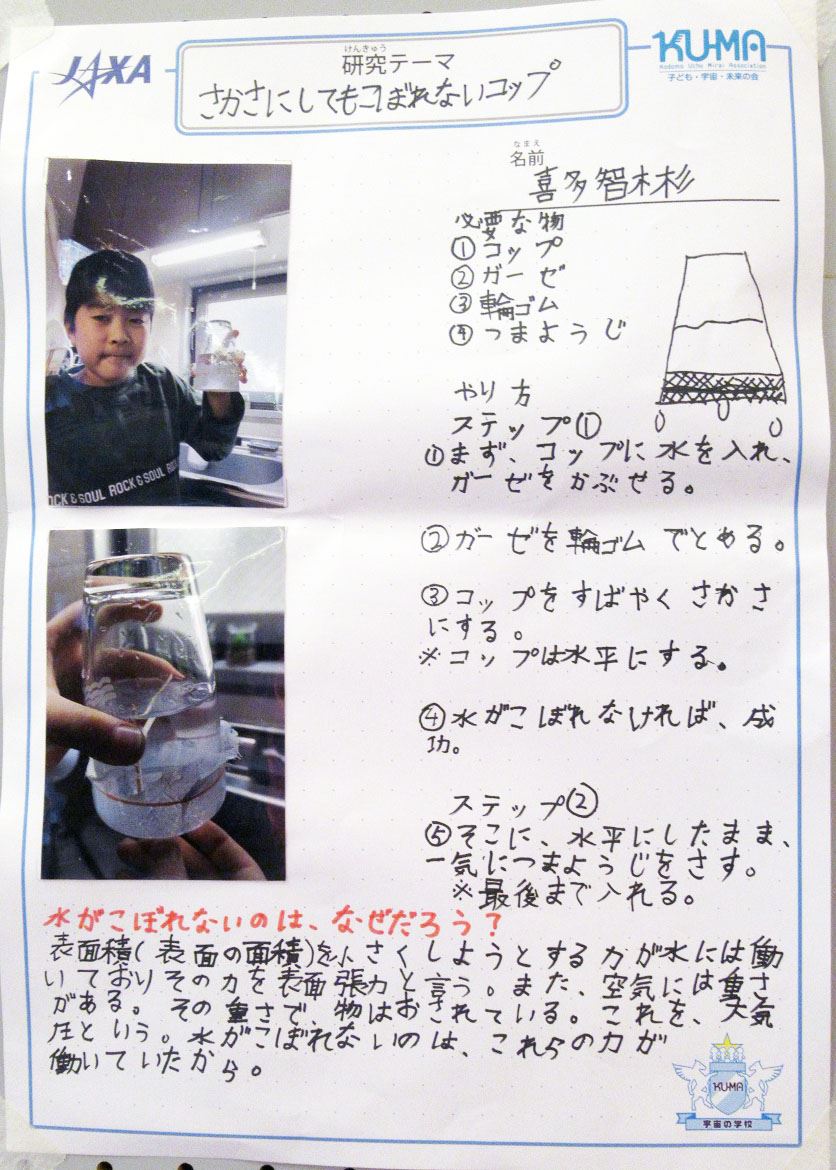 JAXA
けんきゅう
研究テーマ
さかさにしてもこぼれないコップ
KU-MA
Kodomo Uchu Mirai Association
子ども・宇宙・未来の会
なまえ
名前
喜多智木杉
必要な物
①コップ
②ガーゼ
③輪ゴム
④つまようじ
やり方
ステップ①
①まず、コップに水を入れ、
ガーゼをかぶせる。
②ガーゼを輪ゴムでとめる。
③コップをすばやくさかさ
にする。
※コップは水平にする。
④水がこぼれなければ、成
功。
ステップ②
⑤そこに、水平にしたまま、
一気につまようじをさす。
※最後まで入れる。
ROCK & SOUL ROCK & SOUL ROCK
水がこぼれないのは、なぜだろう?
表面積(表面の面積)を小さくしようとする力が水には働
いておりその力を表面張力と言う。また、空気には重さ
がある。その重さで、物はおされている。これを、大気
圧という。水がこぼれないのは、これらの力が
働いていたから。
KU-MA
宇宙の学校